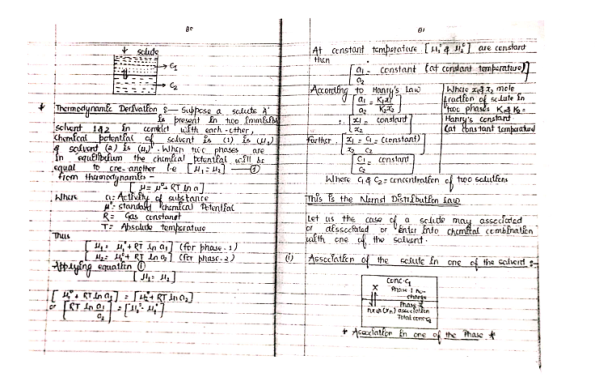 80
solute
C₁
C₂
* Thermodynamic Derivation :— Suppose a solute 'A'
is present in two immiscible
solvent 1&2 in contact with each-other,
chemical potential of solvent is (1) is (μ₁)
& solvent (2) is (μ₂). When two phases are
in equilibrium the chemical potential will be
equal to one-another i.e [μ₁ = μ₂] — (1)
from thermodynamics —
[μ = μ° + RT ln a]
Where a = Activity of substance
μ° = standard chemical potential
R = Gas constant
T = Absolute temperature
Thus
[μ₁ = μ₁° + RT ln a₁] (for phase-1)
[μ₂ = μ₂° + RT ln a₂] (for phase-2)
Applying equation (1)
[μ₁ = μ₂]
[μ₁° + RT ln a₁] = [μ₂° + RT ln a₂]
or [RT ln a₁/a₂] = [μ₂° - μ₁°]
81
At constant temperature [μ₁° & μ₂°] are constant
then
[a₁/a₂ = constant (at constant temperature)]
According to Henry's Law
[a₁/a₂ = K₁x₁/K₂x₂]
∴ [x₁/x₂ = constant]
Where x₁ & x₂ mole
fraction of solute in
two phases K₁ & K₂ =
Henry's constant
(at constant temperature)
further, [x₁/x₂ = C₁/C₂ = (constant)]
[C₁/C₂ = constant]
Where C₁ & C₂ = concentration of two solutions
This is the Nernst Distribution Law
Let us the case of a solute may associated
or dissociated or enter into chemical combination
with one of the solvent.
(i) Association of the solute in one of the solvent :-
Conc-C₁
Phase I no-
change
X
Phase
association
Total conc-C₂
* Association in one of the Phase *